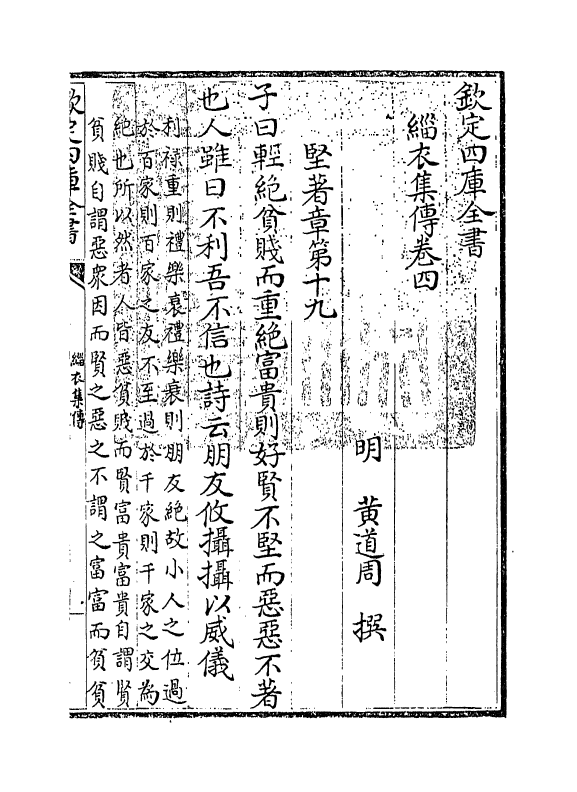 欽定四庫全書
緇衣集傳卷四
明　黃道周　撰
堅著章第十九
子曰輕絶貧賤而重絶富貴則好賢不堅而惡惡不著
也人雖曰不利吾不信也詩云朋友攸攝攝以威儀
利禄重則禮樂衰禮樂衰則朋友絶故小人之位過
於百家則百家之友不至過於千家則千家之交為
絶也所以然者人皆惡貧賤而賢富貴富貴自謂賢
貧賤自謂惡衆因而賢之惡之不謂之富富而貧貧
欽定四庫全書
緇衣集傳